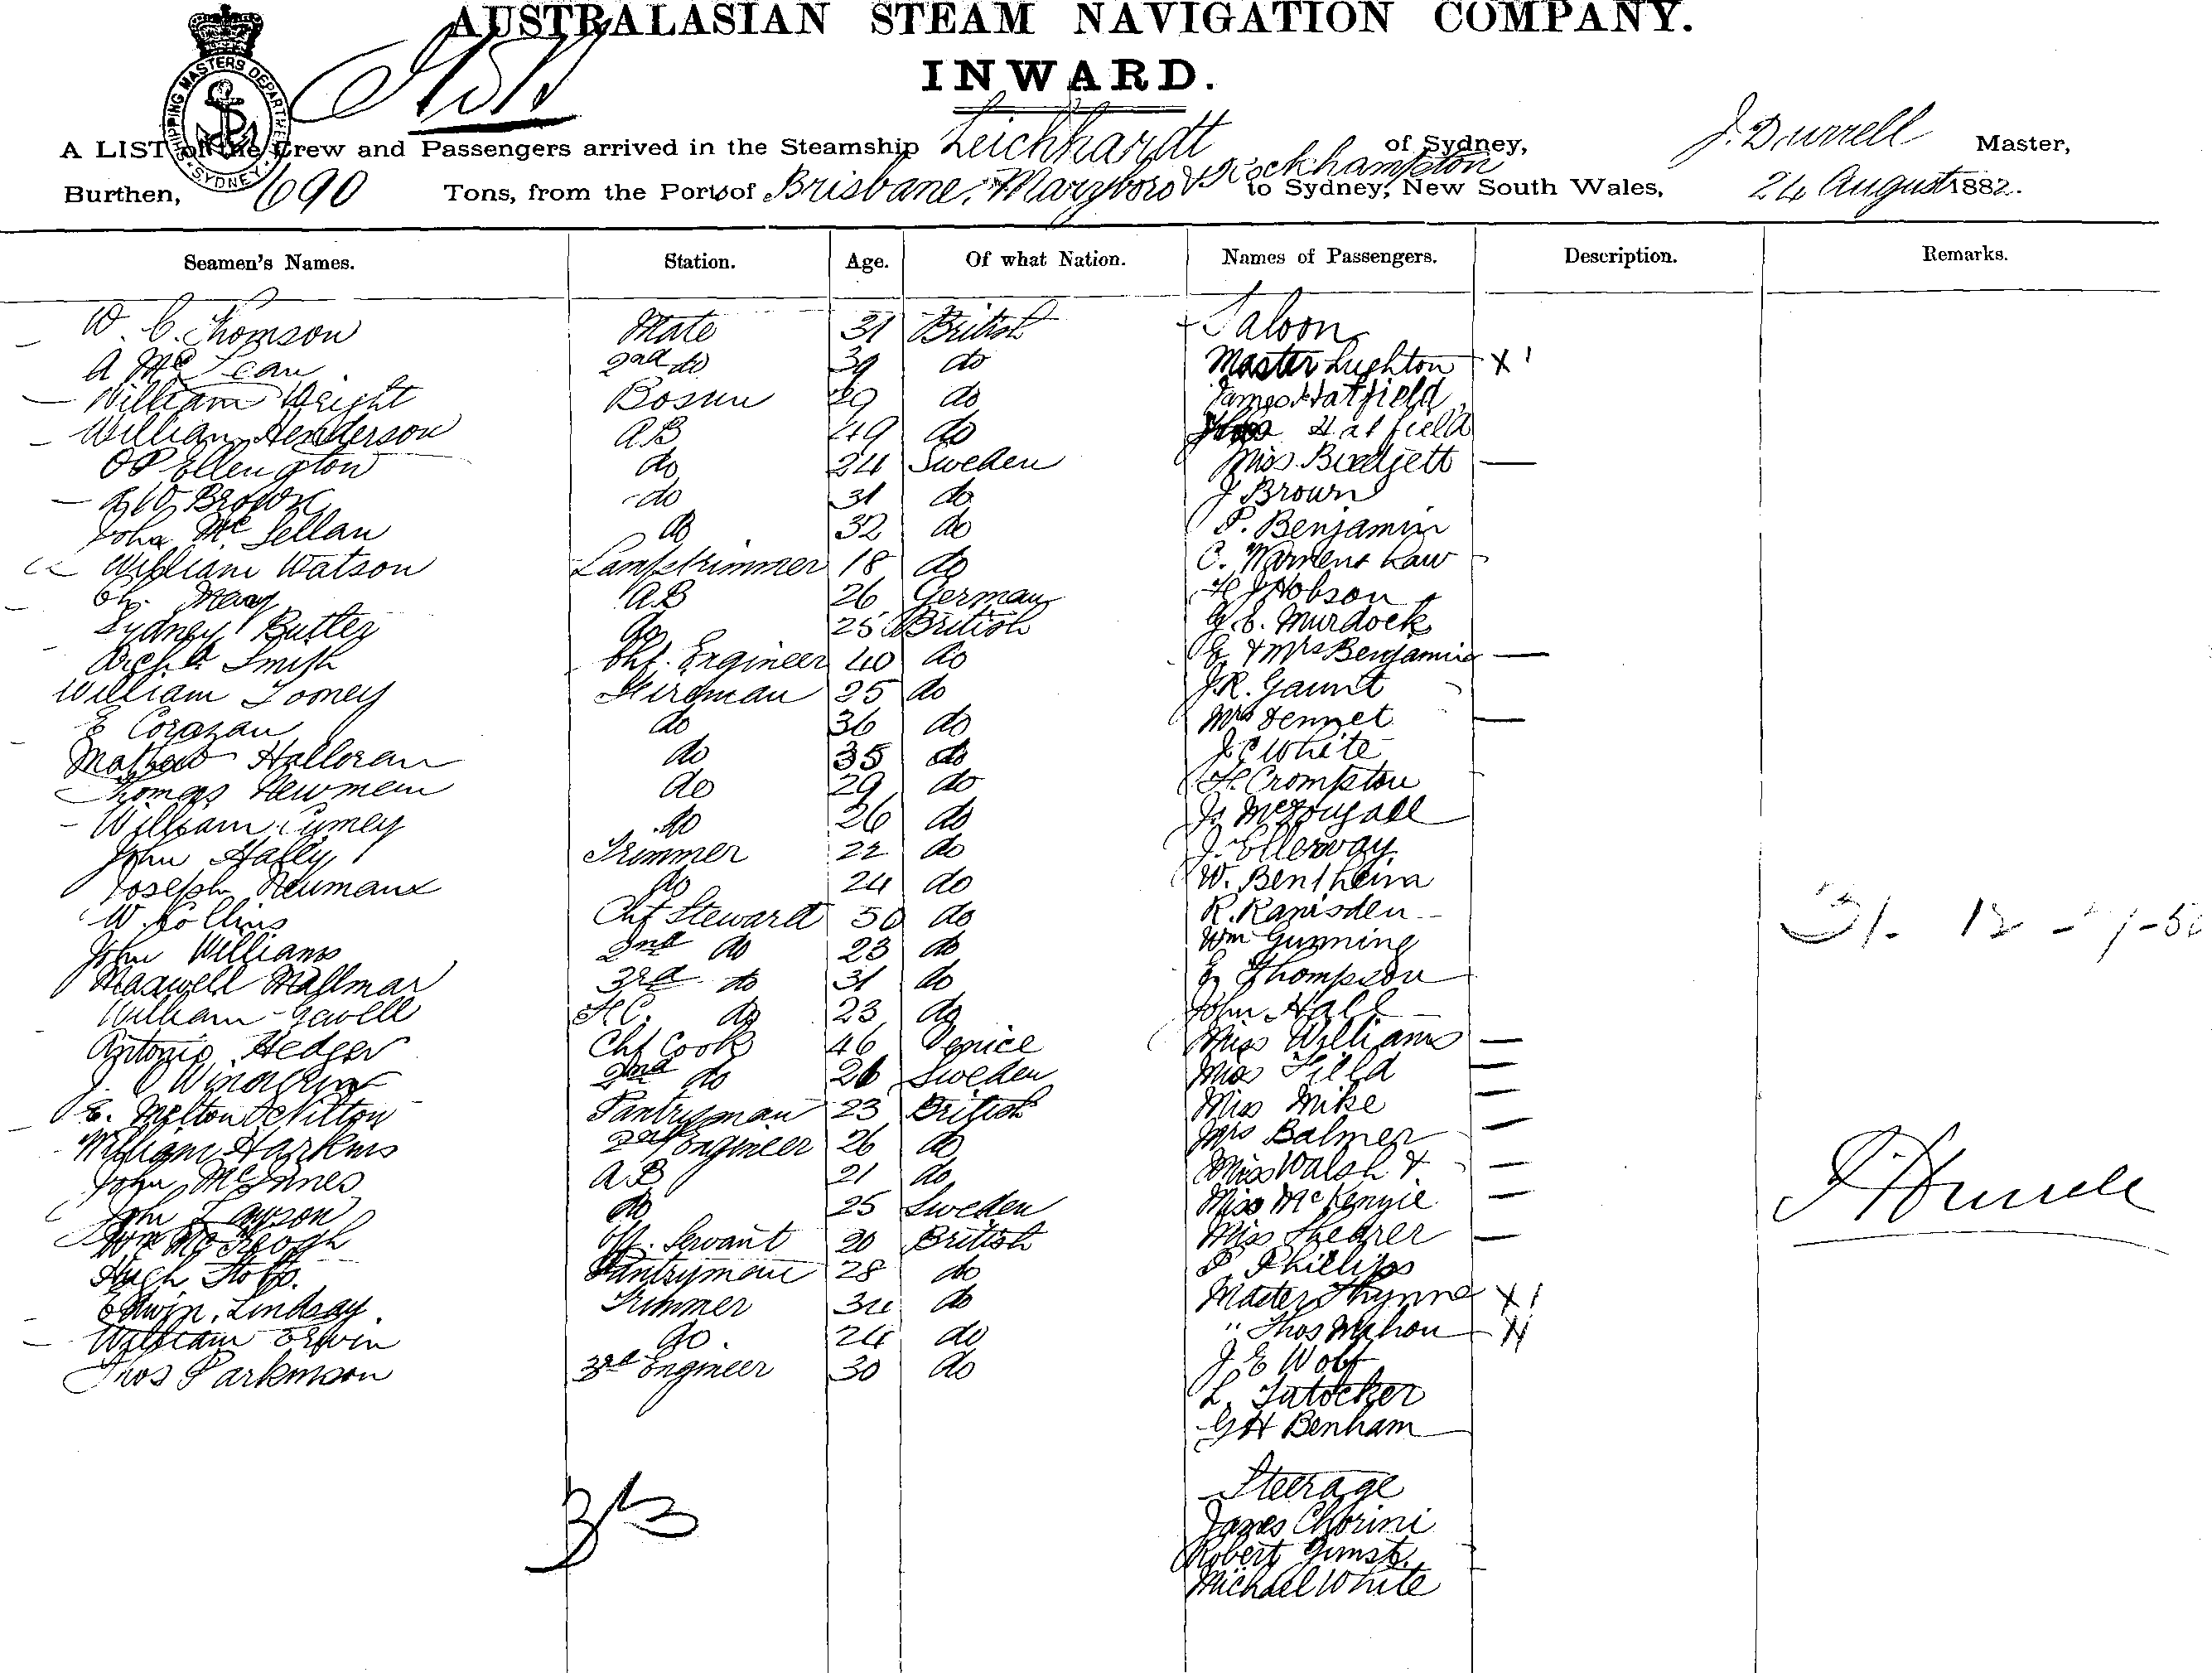 AUSTRALASIAN STEAM NAVIGATION COMPANY.
INWARD.
SHIPPING MASTERS DEPARTMENT SYDNEY
A LIST of the Crew and Passengers arrived in the Steamship Leichhardt of Sydney, J. Durrell Master,
Burthen, 690 Tons, from the Ports of Brisbane, Maryboro & Rockhampton to Sydney, New South Wales, 24 August 1882.
Seamen's Names. Station. Age. Of what Nation. Names of Passengers. Description. Remarks.
W. C. Thomson Mate 31 British Saloon
A McLean 2nd do 39 do Master Lughton x 1
William Wright Bosun 29 do James Hatfield
William Henderson AB 49 do Hatfield
Ellengton do 24 Sweden Miss Blodgett
Brown do 31 do J Brown
John Mc Lellan do 32 do P. Benjamin
William Watson Lamptrimmer 18 do C. Law
AB 26 German Hobson
Sydney Butler do 25 British G. E. Murdock
Arch'd Smith Chf. Engineer 40 do & Mrs Benjamin
William Toomey Fireman 25 do J.R. Gaunt
E Corazan do 36 do Mrs Tennet
Mathew Halloran do 35 do J C White
Thomas Newmein do 29 do H. Crompton
William do 26 do Js McDougall
John Hally Trimmer 22 do J. Elleway
Joseph Neumann do 24 do W. Bentheim
W. Collins Chf Steward 50 do R. Ramsden
John Williams 2nd do 23 do Wm Gunning
Maxwell 3rd do 31 do Thompson
William F.C. do 23 do John Hall
Antonio Hedger Chf Cook 46 Venice Miss Williams
2nd do 26 Sweden Miss Field
E. Melton Pantryman 23 British Miss Mike
William Harkins 2nd Engineer 26 do Mrs Balmer
John McInnes AB 21 do Miss Walsh &
John Lawson do 25 Sweden Miss McKenzie
Wm McKeogh Off. Servant 20 British Miss Shearer
Hugh Pantryman 28 do P Phillips
Edwin Lindsay Trimmer 34 do Master Thynne x 1
William Erwin do. 24 do " Thos Mahon
Thos Parkinson 3rd Engineer 30 do J E Wolf
L.
G H Benham
Steerage
James Chorini
Robert
Michael White
J Durrell